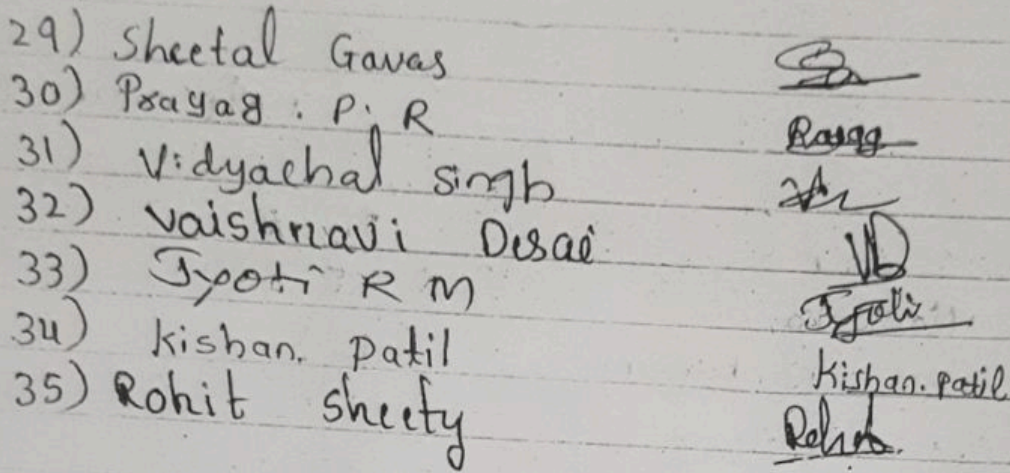 29) Sheetal Gavas
30) Prayag . P. R
31) Vidyachal singh
32) vaishnavi Desai VD
33) Jyoti R M Jyoti
34) kishan. patil Kishan. patil
35) Rohit sheety